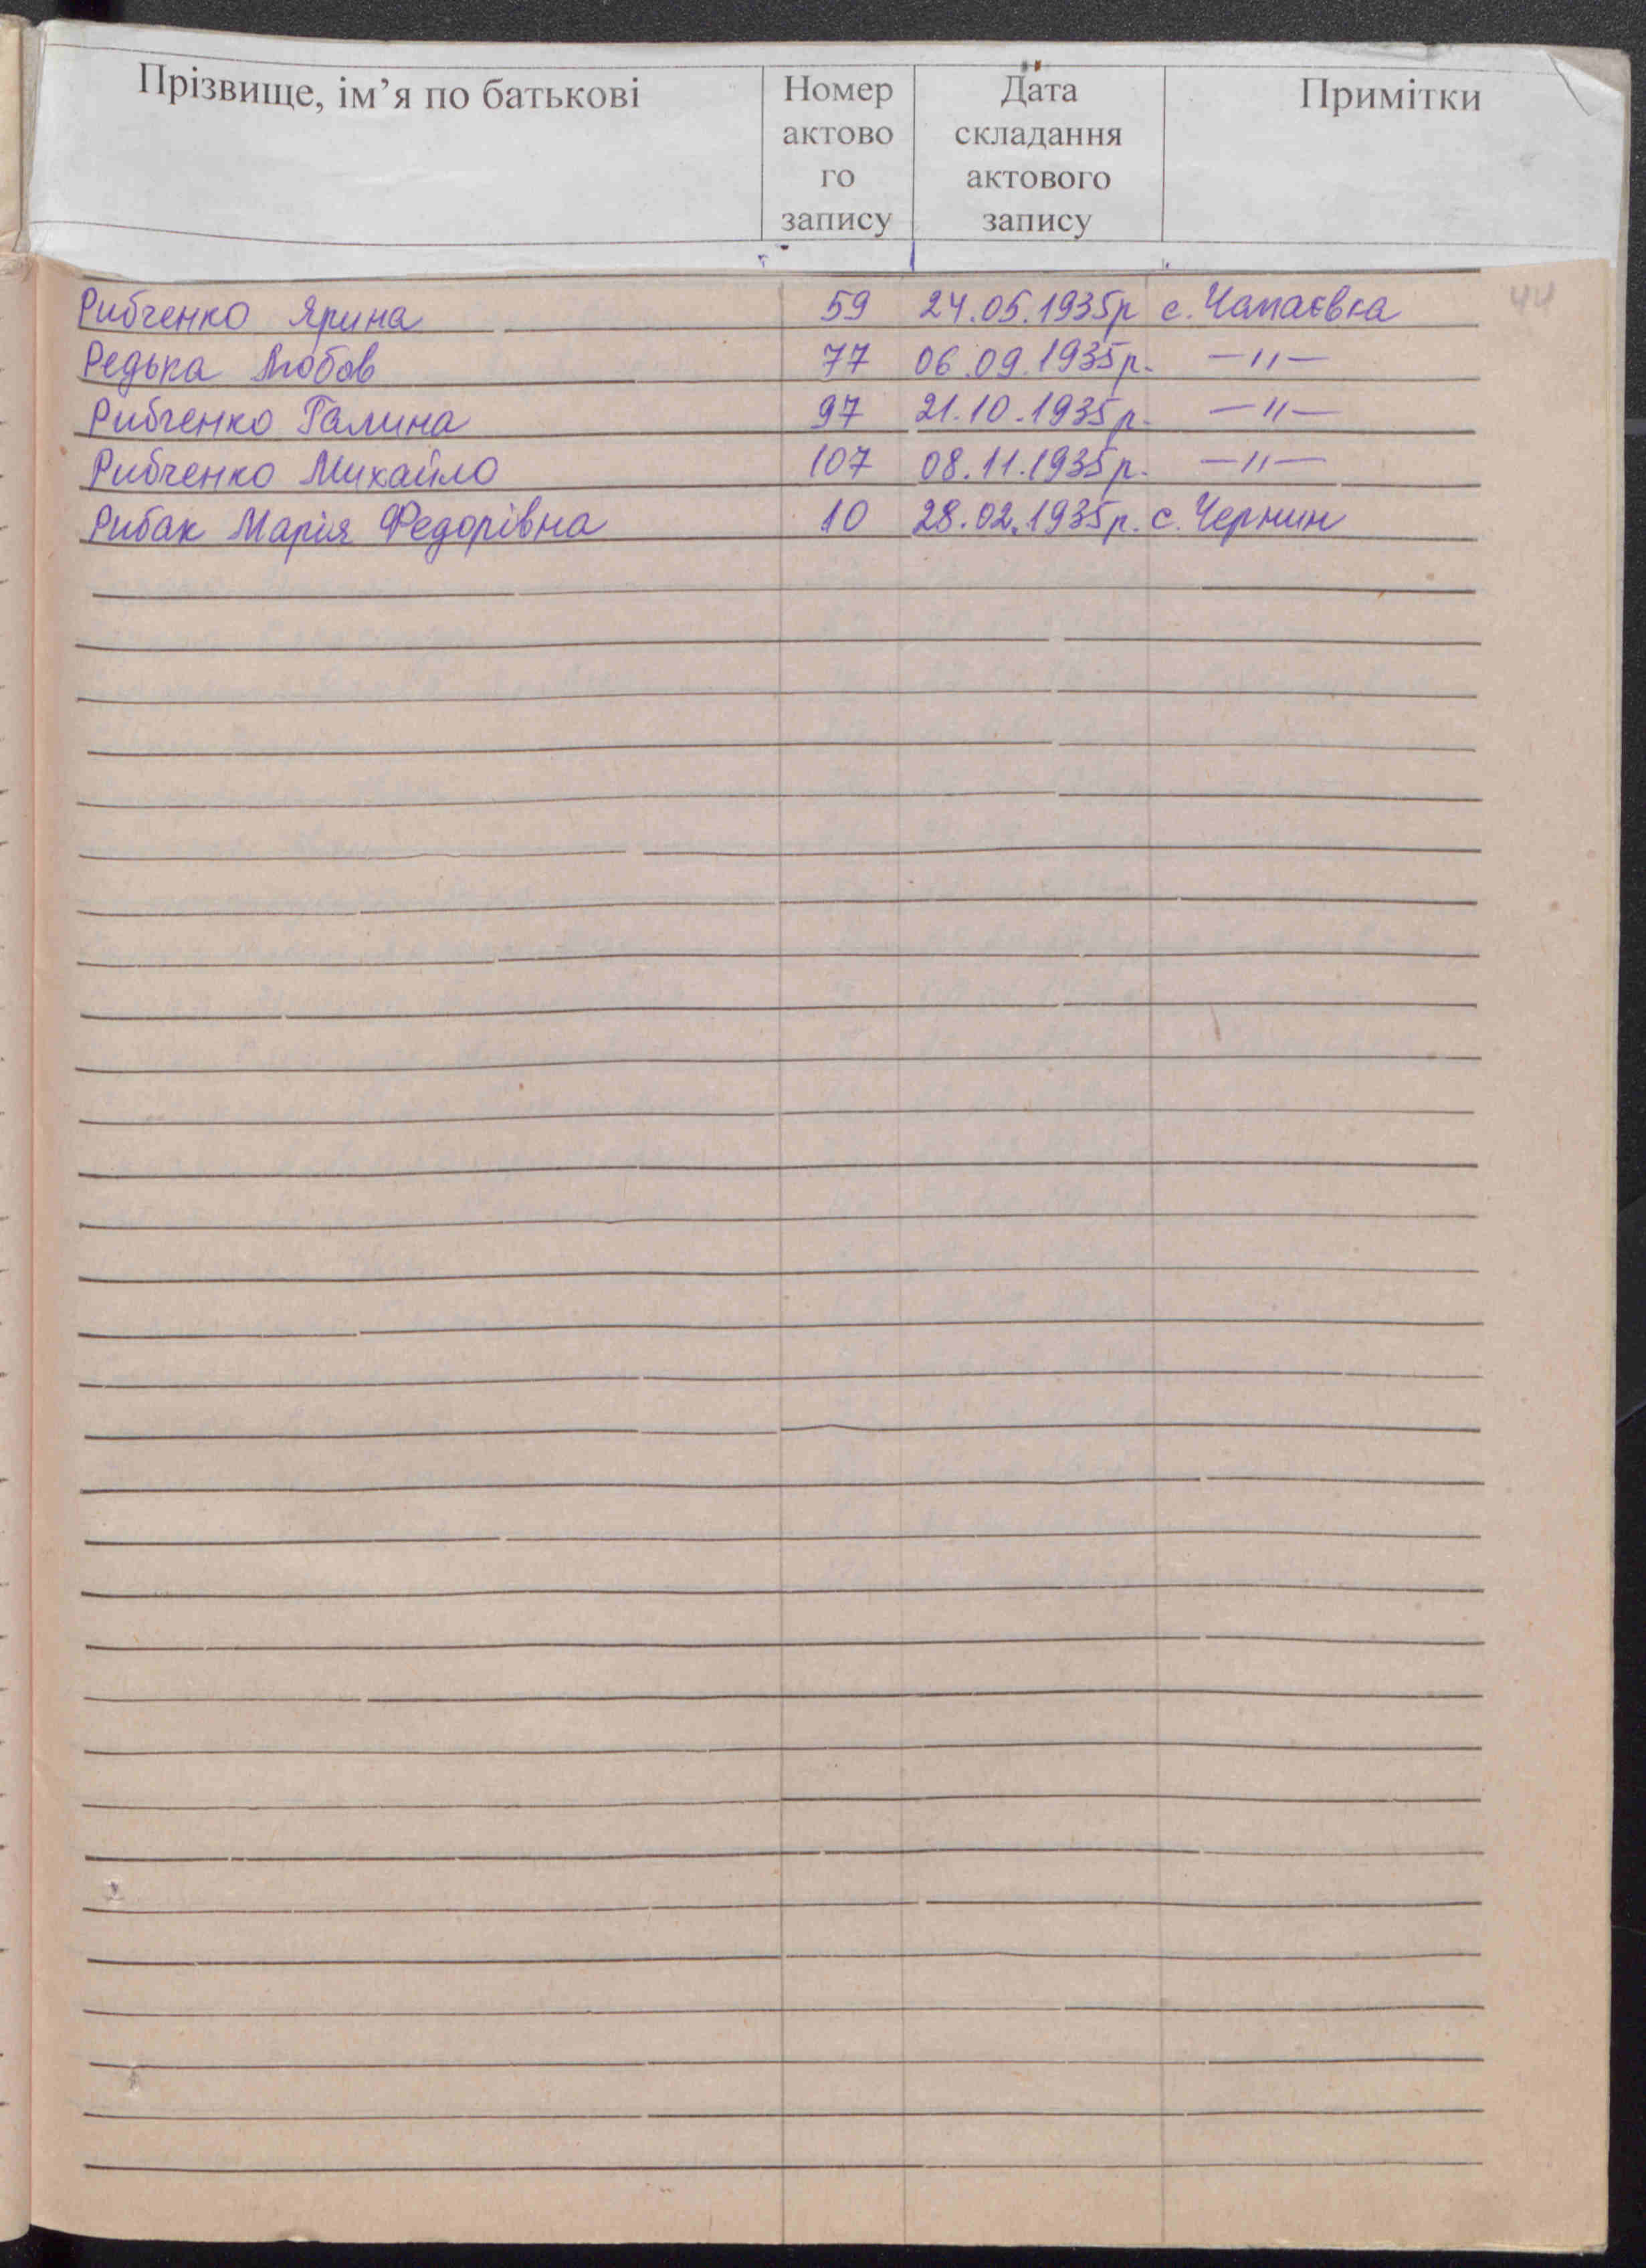 Прізвище, ім’я по батькові Номер актово го запису Дата складання актового запису Примітки
44
Рибченко Ярина 59 24.05.1935р с. Чапаєвка
Редька Любов 77 06.09.1935р. —〃—
Рибченко Галина 97 21.10.1935р. —〃—
Рибченко Михайло 107 08.11.1935р. —〃—
Рибак Марія Федорівна 10 28.02.1935р. с. Чернин